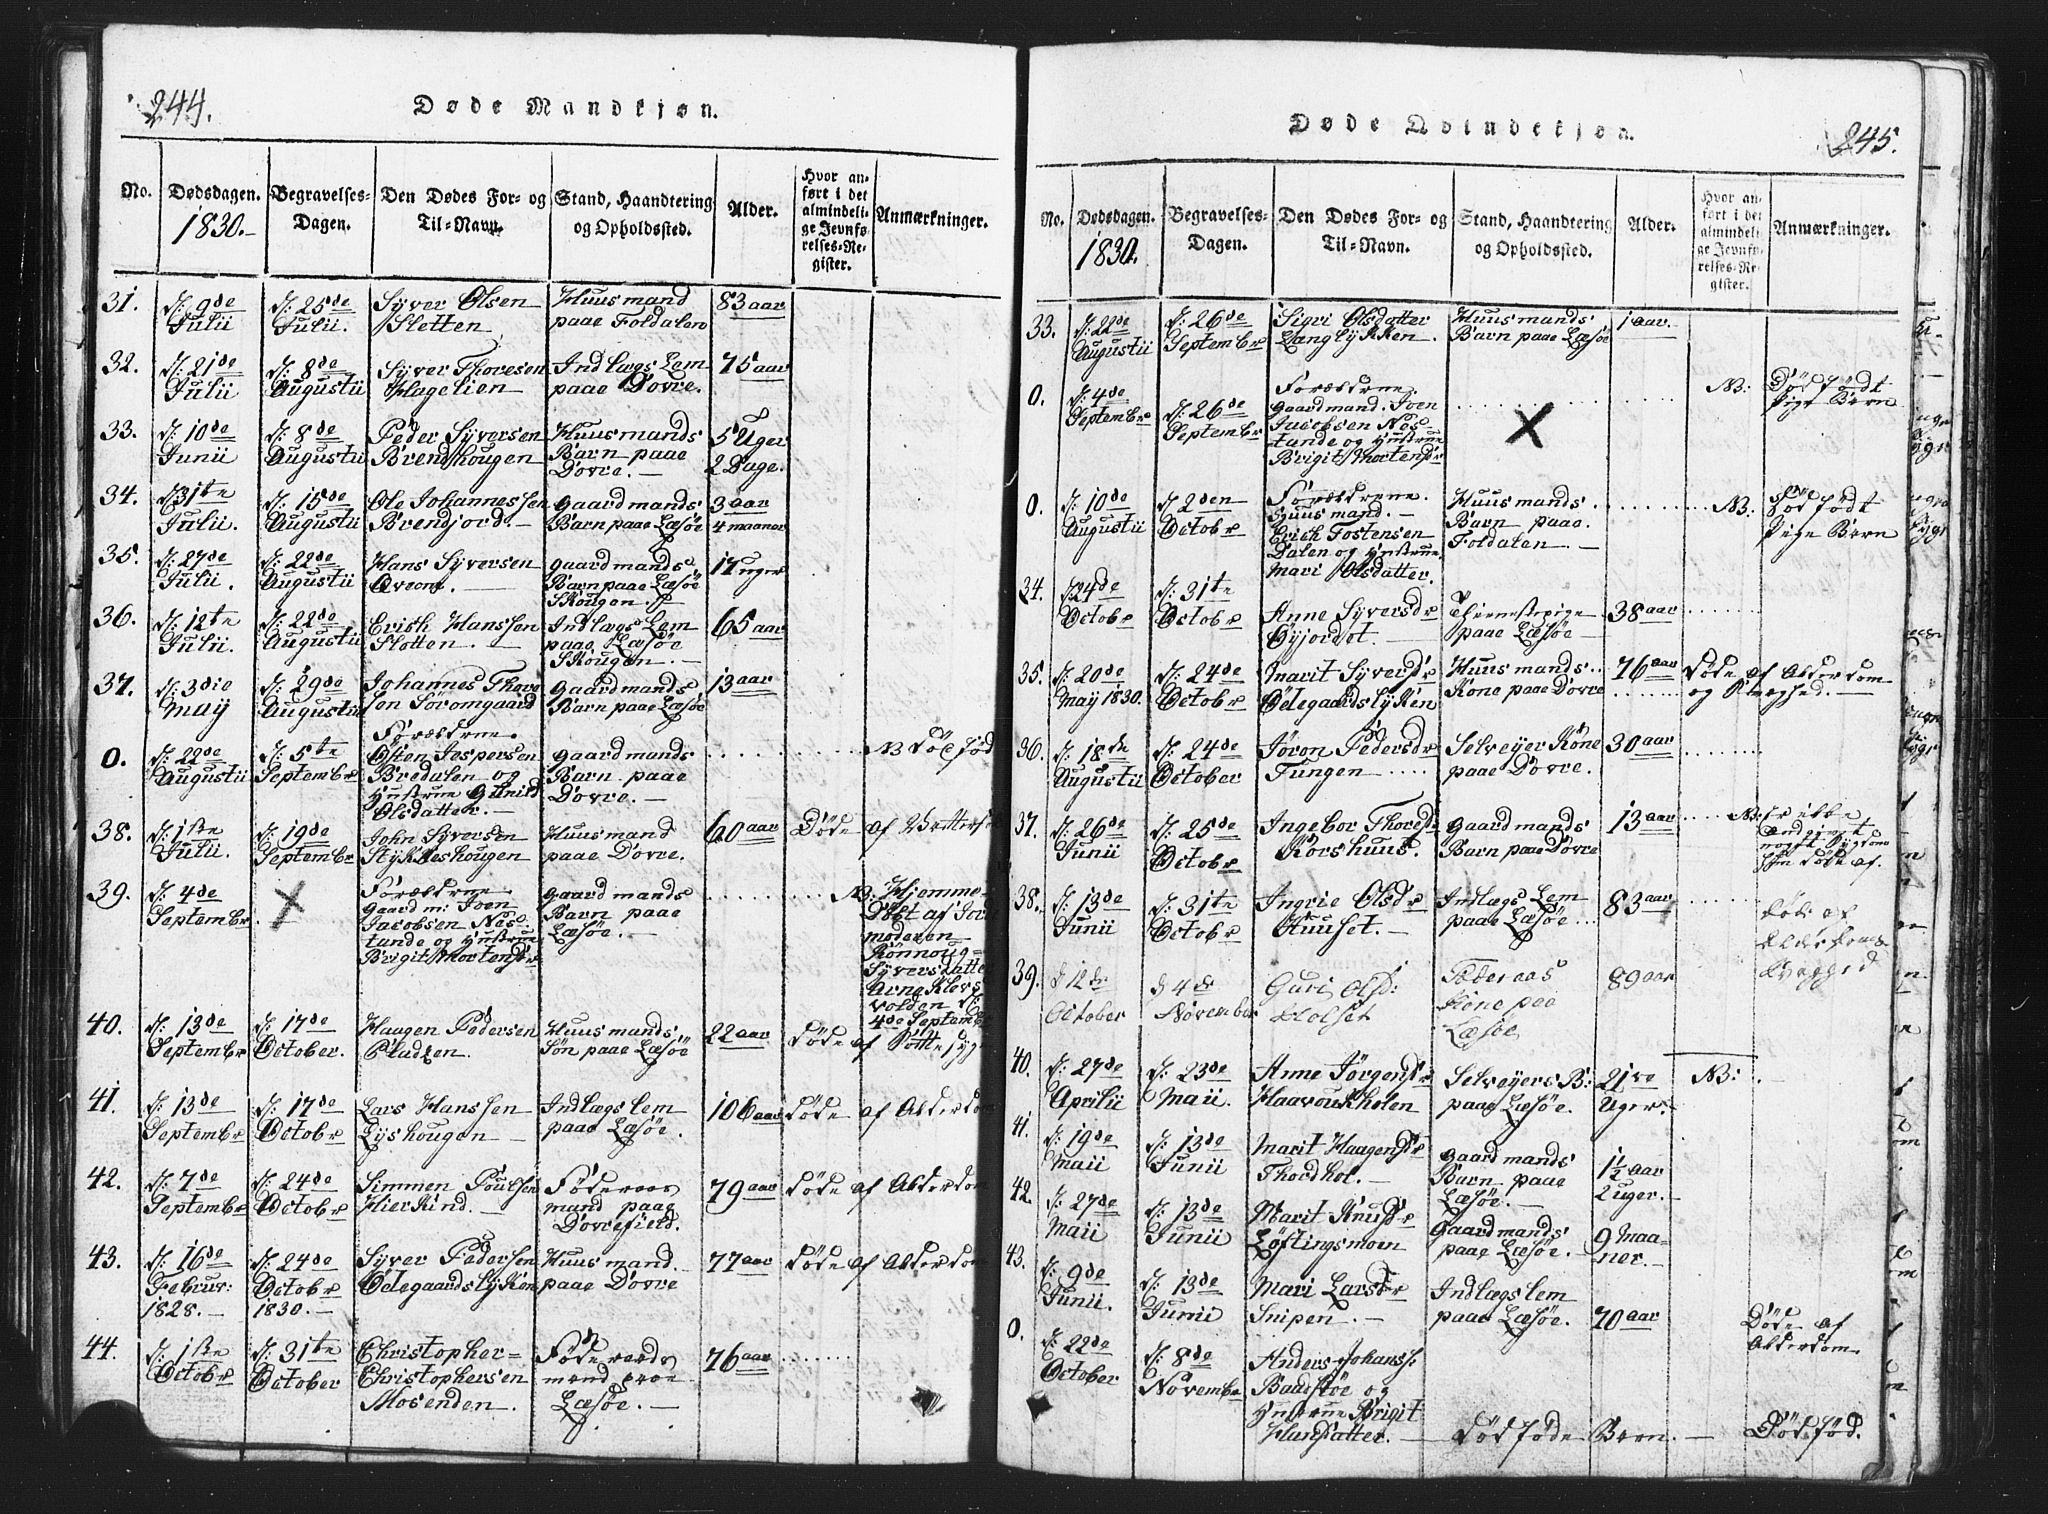 244.
Døde Mandkjøn.
No.
Dødsdagen.
1830.-
Begravelses-
Dagen.
Den Dødes For- og
Til-Navn.
Stand, Haandtering
og Opholdssted.
Alder.
Hvor an-
ført i det
almindeli-
ge Jevnfø-
relses-Re-
gister.
Anmærkninger.
31. d: 9de Julii
d: 25de Julii.
Syver Olsen
Sletten
Huusmand
paae Foldalen
83 aar
32. d: 21de Julii
d: 8de Augustii
Syver Thoresen
Hagelien
Indlægs Lem
paae Dovre.
75 aar
33. d: 10de Junii
d: 8de Augustii
Peder Syversen
Brendhougen
Huusmands
Barn paae
Dovre. —
5 Uger
2 Dage.
34. d: 31te Julii.
d: 15de Augustii
Ole Johannessen
Brendjord —
Gaardmands
Barn paae Læsöe
3 aar
4 maaner
35. d: 27de Julii.
d: 22de Augustii
Hans Syversen
Gaardmands
Barn paae Læsöe
Skougen.
17 uger
36. d: 12te Julii.
d: 22de Augustii
Erich Hanssen
Slotten. —
Indlægs Lem
paae Læsöe
Skougen. —
65 aar
37. d: 3die May
d: 29de Augustii
Johannes Thore
sen Söromgaard
Gaardmands
Barn paae Læsöe
13 aar
0. d: 22de Augustii
d: 5te Septembr
Forældrene
Østen Jespersen
Bredalen og
Hustrue Gunild
Olsdatter. —
Gaardmands
Barn paae
Dovre. —
NB Död föd
38. d: 1ste Julii.
d: 19de Septembr
John Syversen
Stykkeshougen
Huusmand
paae Dovre.
60 aar
Döde af
39. d: 4de Septembr.
X
Forældrene
Gaardm: Iven
Jacobsen Nes-
tande og Hustrue
Brigit Mortensdr
Gaardmands
Barn paae
Læsöe. —
NB: Hjemme-
döbt af Jorde
moderen
Rönnoug
Syversdatte
Arneklevs
volden d:
4de Septembr
40. d: 13de Septembr
d: 17de October.
Haagen Pedersen
Pladsen.
Huusmands
Sön paae Læsöe
22 aar
Döde af
41. d: 13de Septembr
d: 17de Octobr
Lars Hanssen
Lyshougen —
Indlægslem
paae Læsöe.
106 aar
Döde af Alderdom
42. d: 7de Septembr
d: 24de Octobr
Simmen Poulsen
Hierkind. —
Föderaas
mand paae
Dovrefield.
79 aar
Döde af Alderdom
43. d: 16de
Februar:
1828. —
d: 24de
Octobr
1830. —
Syver Pedersen
Ødegaardslykken
Huusmand.
paae Dovre
77 aar
Döde af Alderdom
44. d: 1ste Octobr
d: 31te October
Christopher
Christophersen
Mosenden.
Föderaads
mand paae
Læsöe. —
76 aar
Døde Qvindekjøn.
245.
No.
Dødsdagen.
1830.
Begravelses-
Dagen.
Den Dødes For- og
Til-Navn.
Stand, Haandtering
og Opholdssted.
Alder.
Hvor an-
ført i det
almindeli-
ge Jevnfø-
relses-Re-
gister.
Anmærkninger.
33. d: 22de Augustii
d: 26de Septembr
Sigri Olsdatter
Langlykken.
Huusmands
Barn paae Læsöe
1 aar.
0. d: 4de Septembr
d: 26de Septembr
Forældrene
Gaardmand. Iven
Jacobsen Nes-
tande og Hustrue
Brigit Mortensdr
X
NB: Död födt
Pige Barn
0. d: 10de Augustii
d: 2den Octobr
Forældrene.
Huusmand. —
Erich Tostensen
Dalen og Hustrue
Mari Olsdatter.
Huusmands
Barn paae
Foldalen. —
NB: Död födt
Pige Barn
34. d: 24de Octobr
d: 31te Octobr
Anne Syversdr
Öyjordet. —
Thienestepige
paae Læsöe —
38 aar
35. d: 20de
May 1830.
d: 24de Octobr
Marit Syversdr
Ødegaardslykken
Huusmands
Kone paae Dovre
76 aar
Döde af Alderdom
og Svaghed. —
36. d: 18de Augustii
d: 24de October
Jöron Pedersdr
Tungen
Selveyer Kone
paae Dovre.
30 aar
37. d: 26de Junii
d: 25de Octobr
Ingebor Thoresdr
Korshuus.
Gaardmands
Barn paae Dovre
13 aar
NB: er ikke
andgivet
noget Sygdom
hun döde af.
38. d: 13de Junii
d: 31te Octobr
Ingrie Olsdr
Huuset. —
Indlægs Lem
paae Læsöe
83 aar
Döde af
Alderdoms
Svaghed
39. d 12de October
d 4de November
Guri Olsd:
Holset
Föderaas
Kone paa
Læsöe
89 aar
40. d: 27de Aprilii
d: 23de Maii.
Anne Jörgensdr
Haavoukholen
Selveyers B:
paae Læsöe.
21ve
Uger.
NB:
41. d: 19de Maii
d: 13de Junii
Marit Haagensdr
Thordhol. —
Gaardmands
Barn paae
Læsöe. —
1½ aar
2 uger. —
42. d: 27de Maii
d: 13de Junii
Marit Knudsdr
Löftingsmoen
Gaardmands
paae Læsöe. —
9 Maa-
ner. —
43. d: 9de Junii.
d: 13de Junii
Mari Larsdr
Snipen. —
Indlægslem
paae Læsöe.
70 aar
Döde af
Alderdom.
0. d: 22de October
d: 8de Novembr
Anders Johans:
Baadstöe og
Hustrue Brigit
Hansdatter. —
Död föde Barn. —
Död föd.